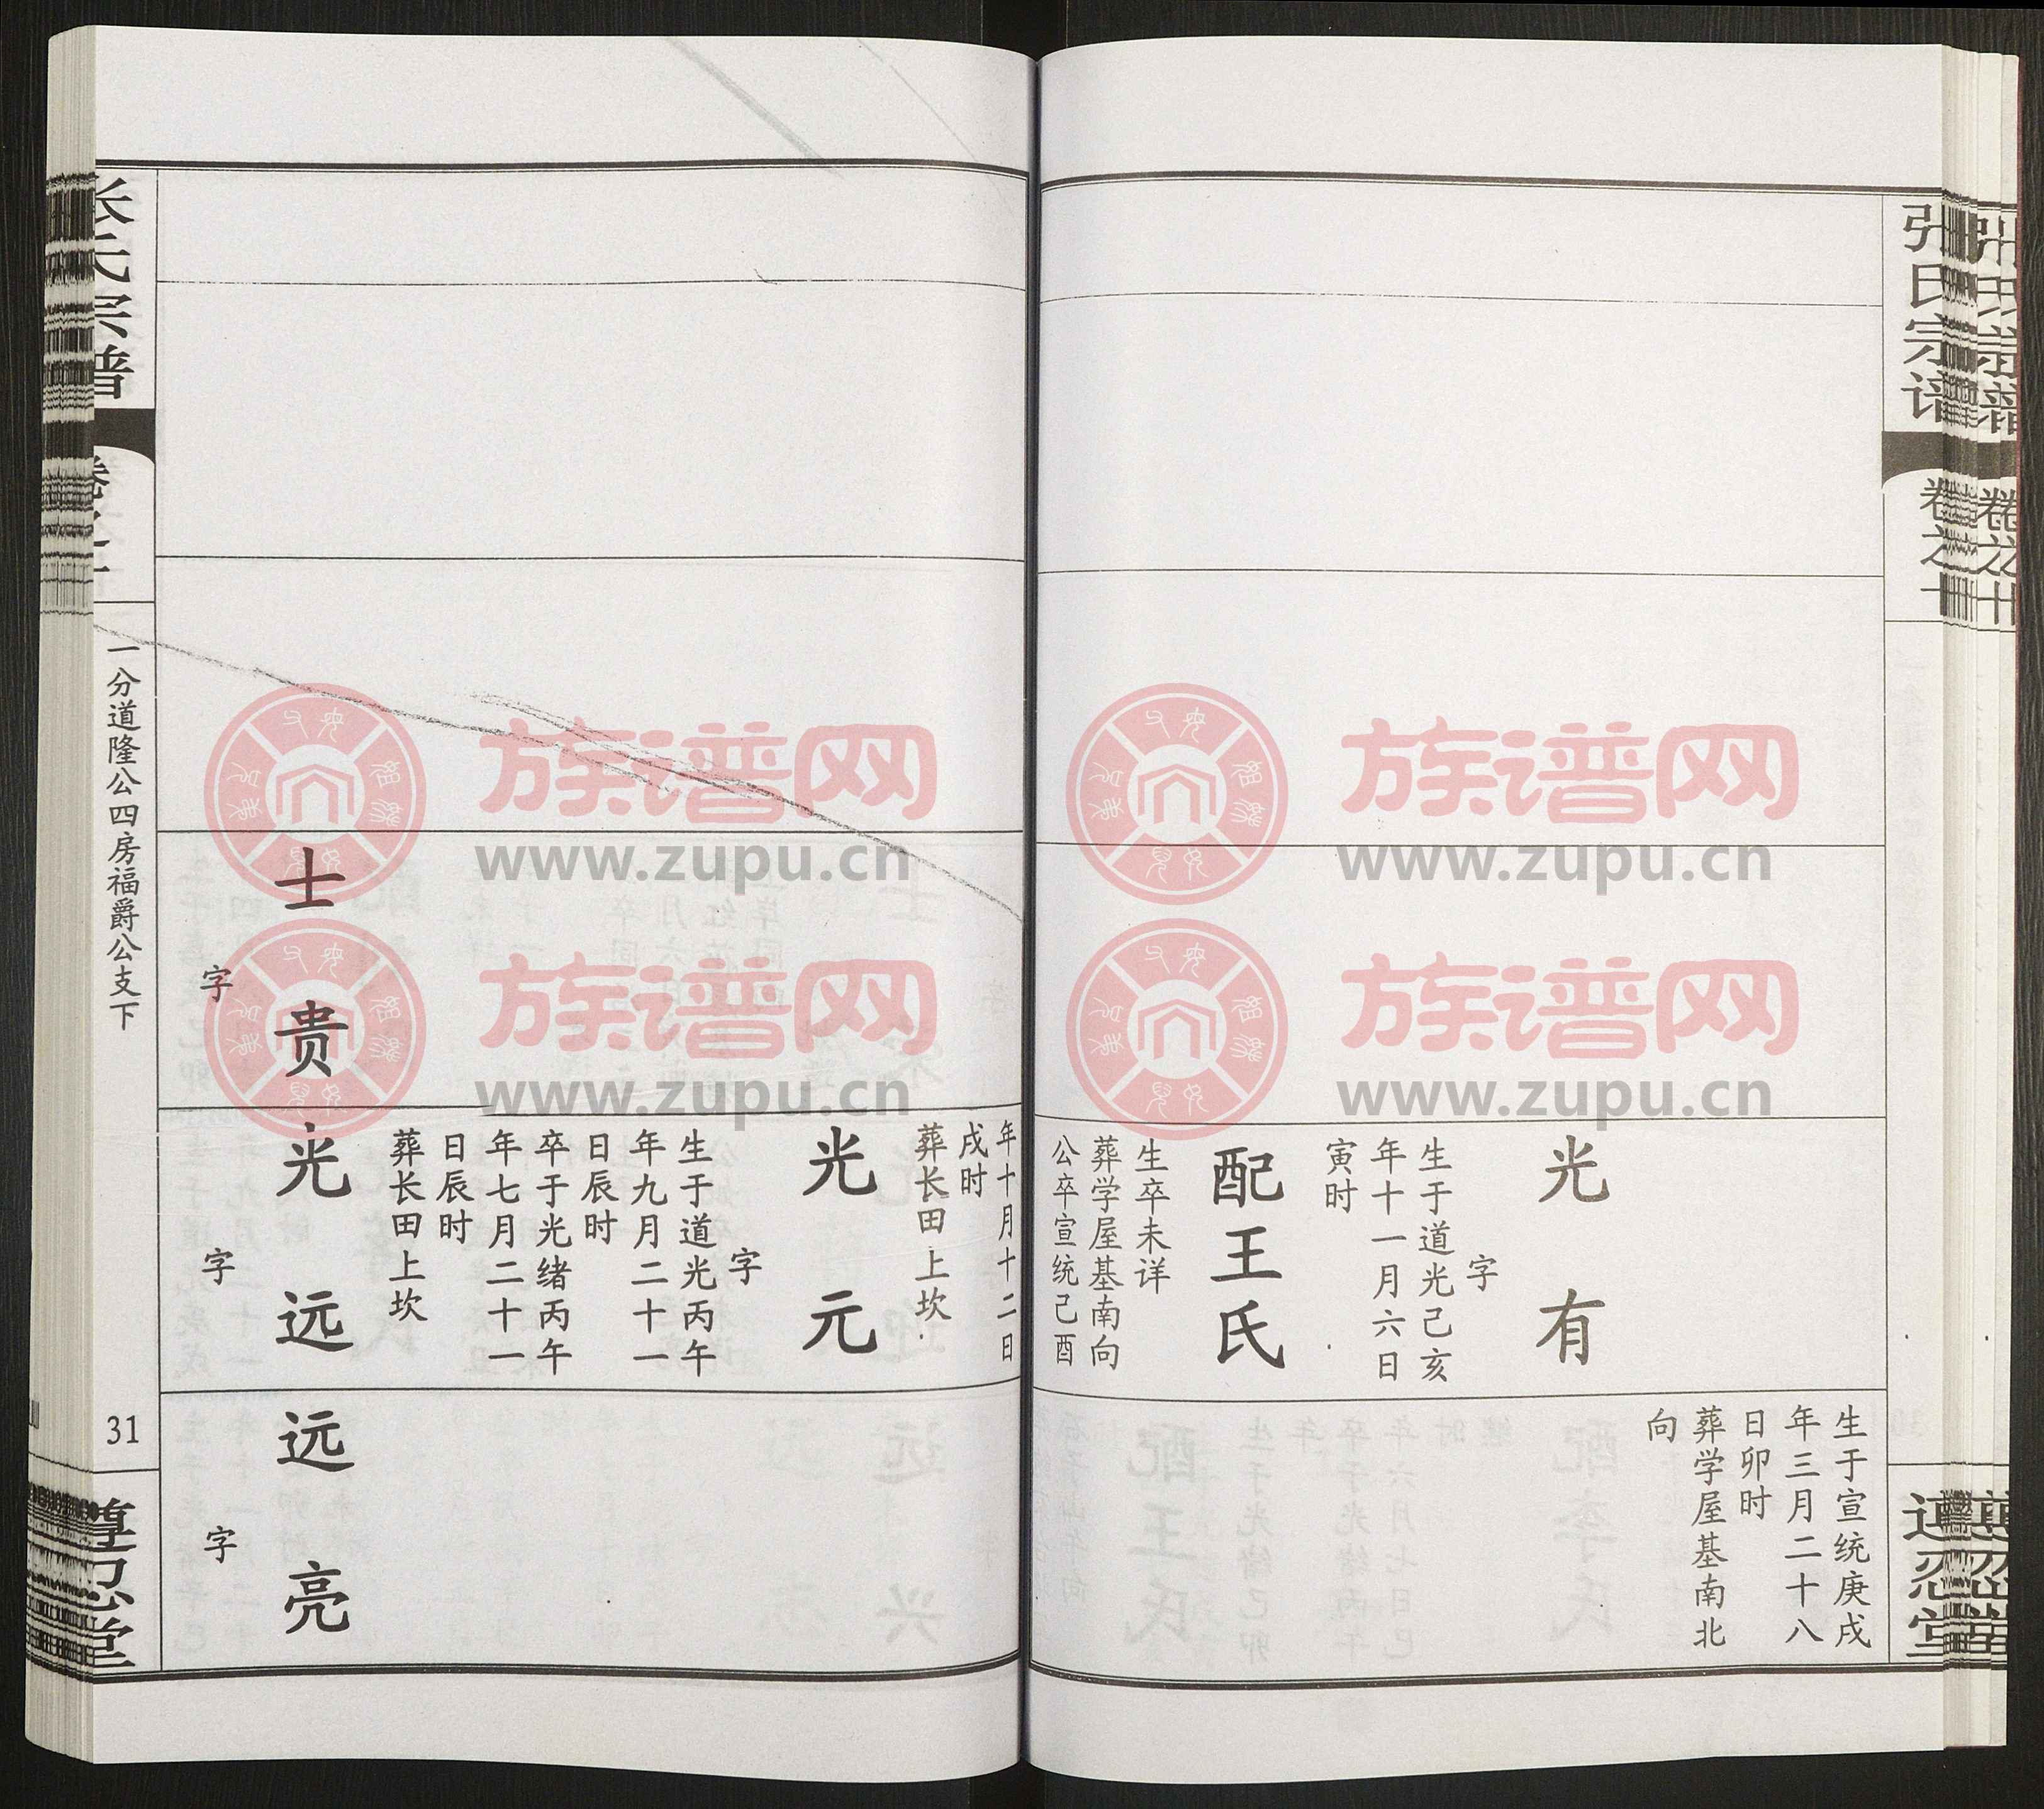 张氏宗谱
卷之十
光有
字
生于道光己亥
年十一月六日
寅时
配王氏
生卒未详
葬学屋基南向
公卒宣统己酉
生于宣统庚戌
年三月二十八
日卯时
葬学屋基南北
向
年十月十二日
戌时
葬长田上坎
光元
字
生于道光丙午
年九月二十一
日辰时
卒于光绪丙午
年七月二十一
日辰时
葬长田上坎
士贵
字
光远
字
远亮
字
张氏宗谱
卷之十
一分道隆公四房福爵公支下
31
族谱网
www.zupu.cn
族谱网
www.zupu.cn
族谱网
www.zupu.cn
族谱网
www.zupu.cn